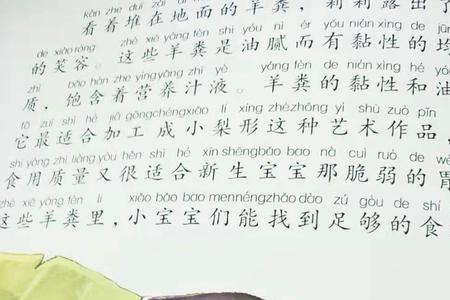 看着堆在地面的羊粪，莉莉露出了
de xiào róng zhè xiē yáng fèn shì yóu nì ér yǒu nián xìng de jūn
的笑容。这些羊粪是油腻而有黏性的均
zhì bǎo hán zhe yíng yǎng zhī yè yáng fèn de nián xìng hé yó
质，饱含着营养汁液。羊粪的黏性和油
tā zuì shì hé jiā gōng chéng xiǎo lí xíng zhè zhǒng yì shù zuò pǐn
它最适合加工成小梨形这种艺术作品，
shí yòng zhì liàng yòu hěn shì hé xīn shēng bǎo bao nà cuì ruò de wè
食用质量又很适合新生宝宝那脆弱的胃
zhè xiē yáng fèn lǐ xiǎo bǎo bao men néng zhǎo dào zú gòu de shí
这些羊粪里，小宝宝们能找到足够的食